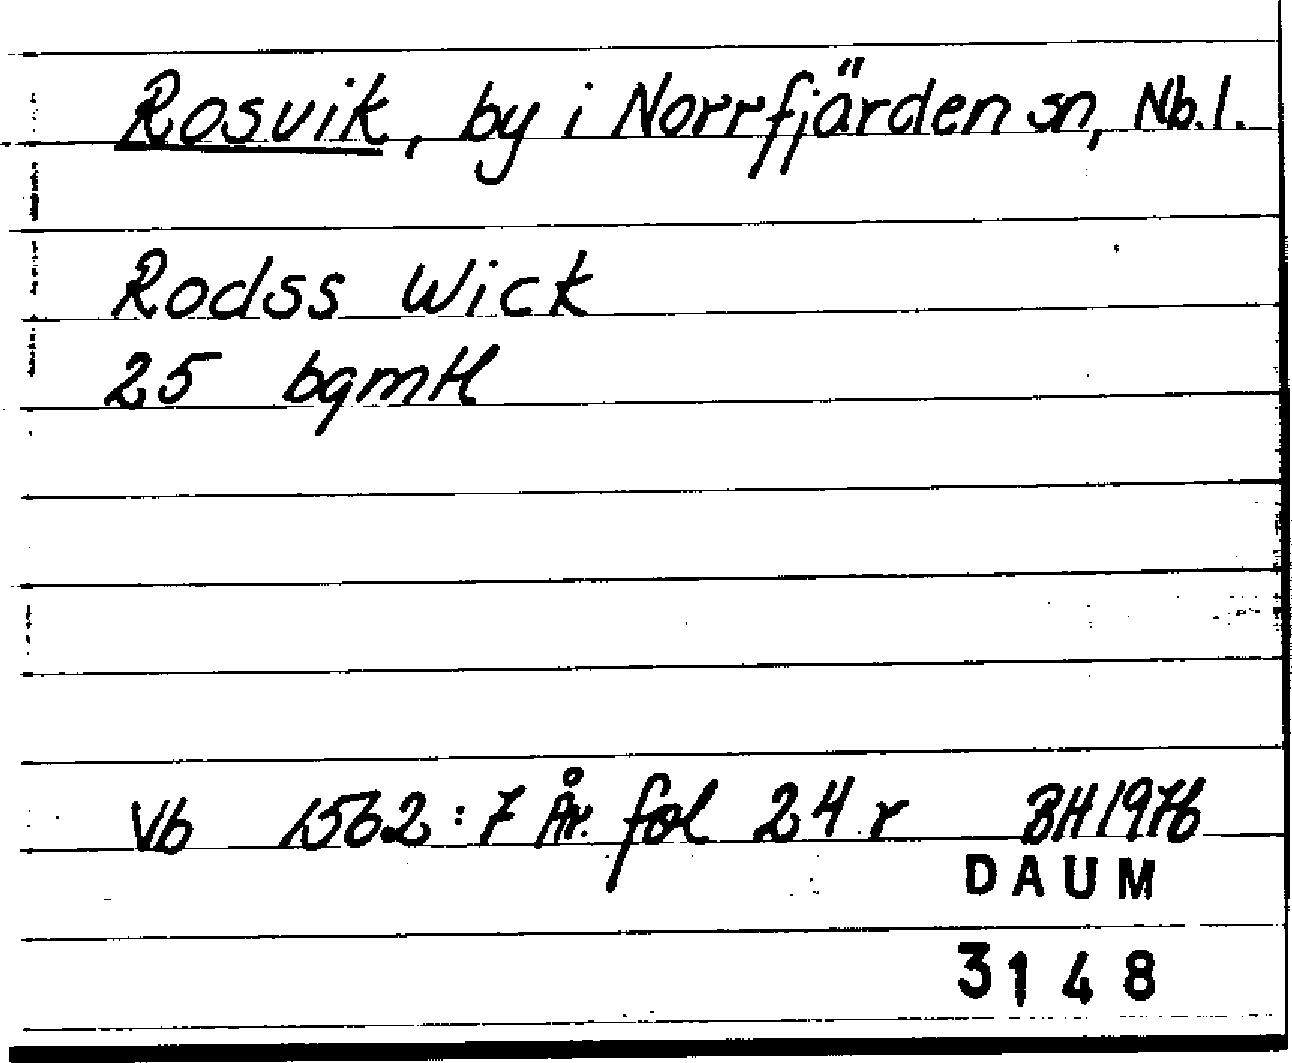 Rosvik, by i Norrfjärden sn, Nb.l.
Rodss Wick
25 bgmtl
Vb 1562:7 År. fol 24 r BH 1976
DAUM
3148